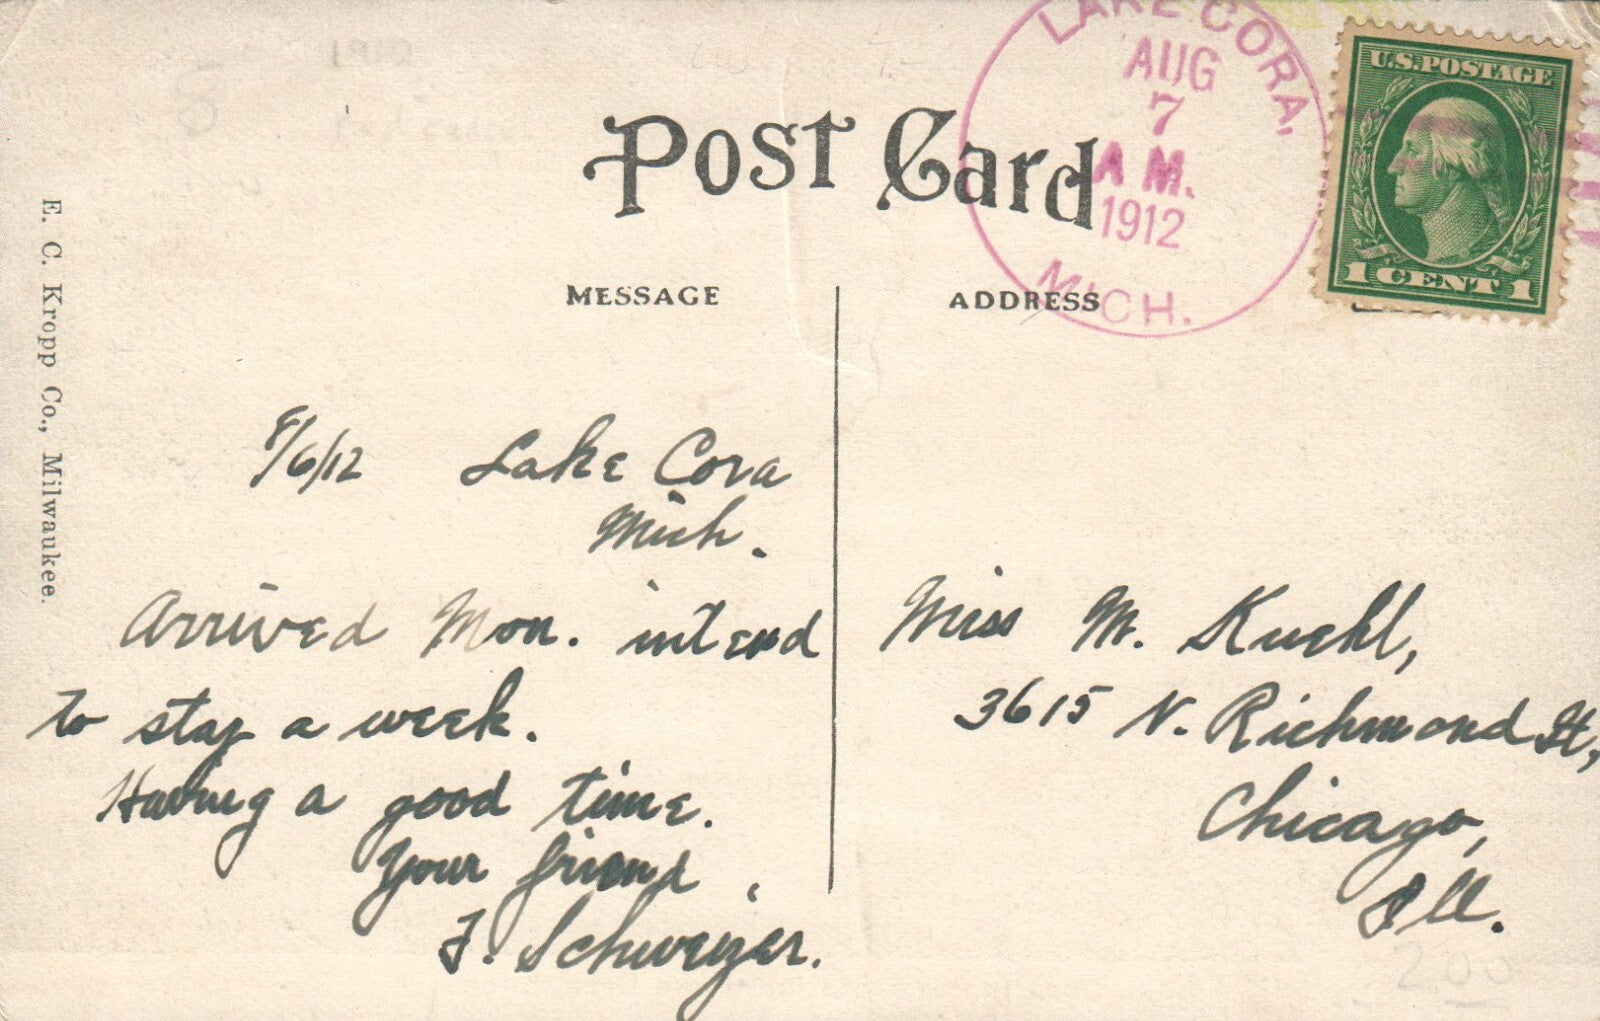 Post Card
LAKE CORA,
AUG
7
A M.
1912
MICH.
U.S. POSTAGE
1 CENT 1
MESSAGE
ADDRESS
E. C. Kropp Co., Milwaukee.
8/6/12 Lake Cora
Mich.
Arrived Mon. intend
to stay a week.
Having a good time.
Your friend,
F. Schweizer.
Miss M. Kuehl,
3615 N. Richmond St,
Chicago,
Ill.
200
1912
8